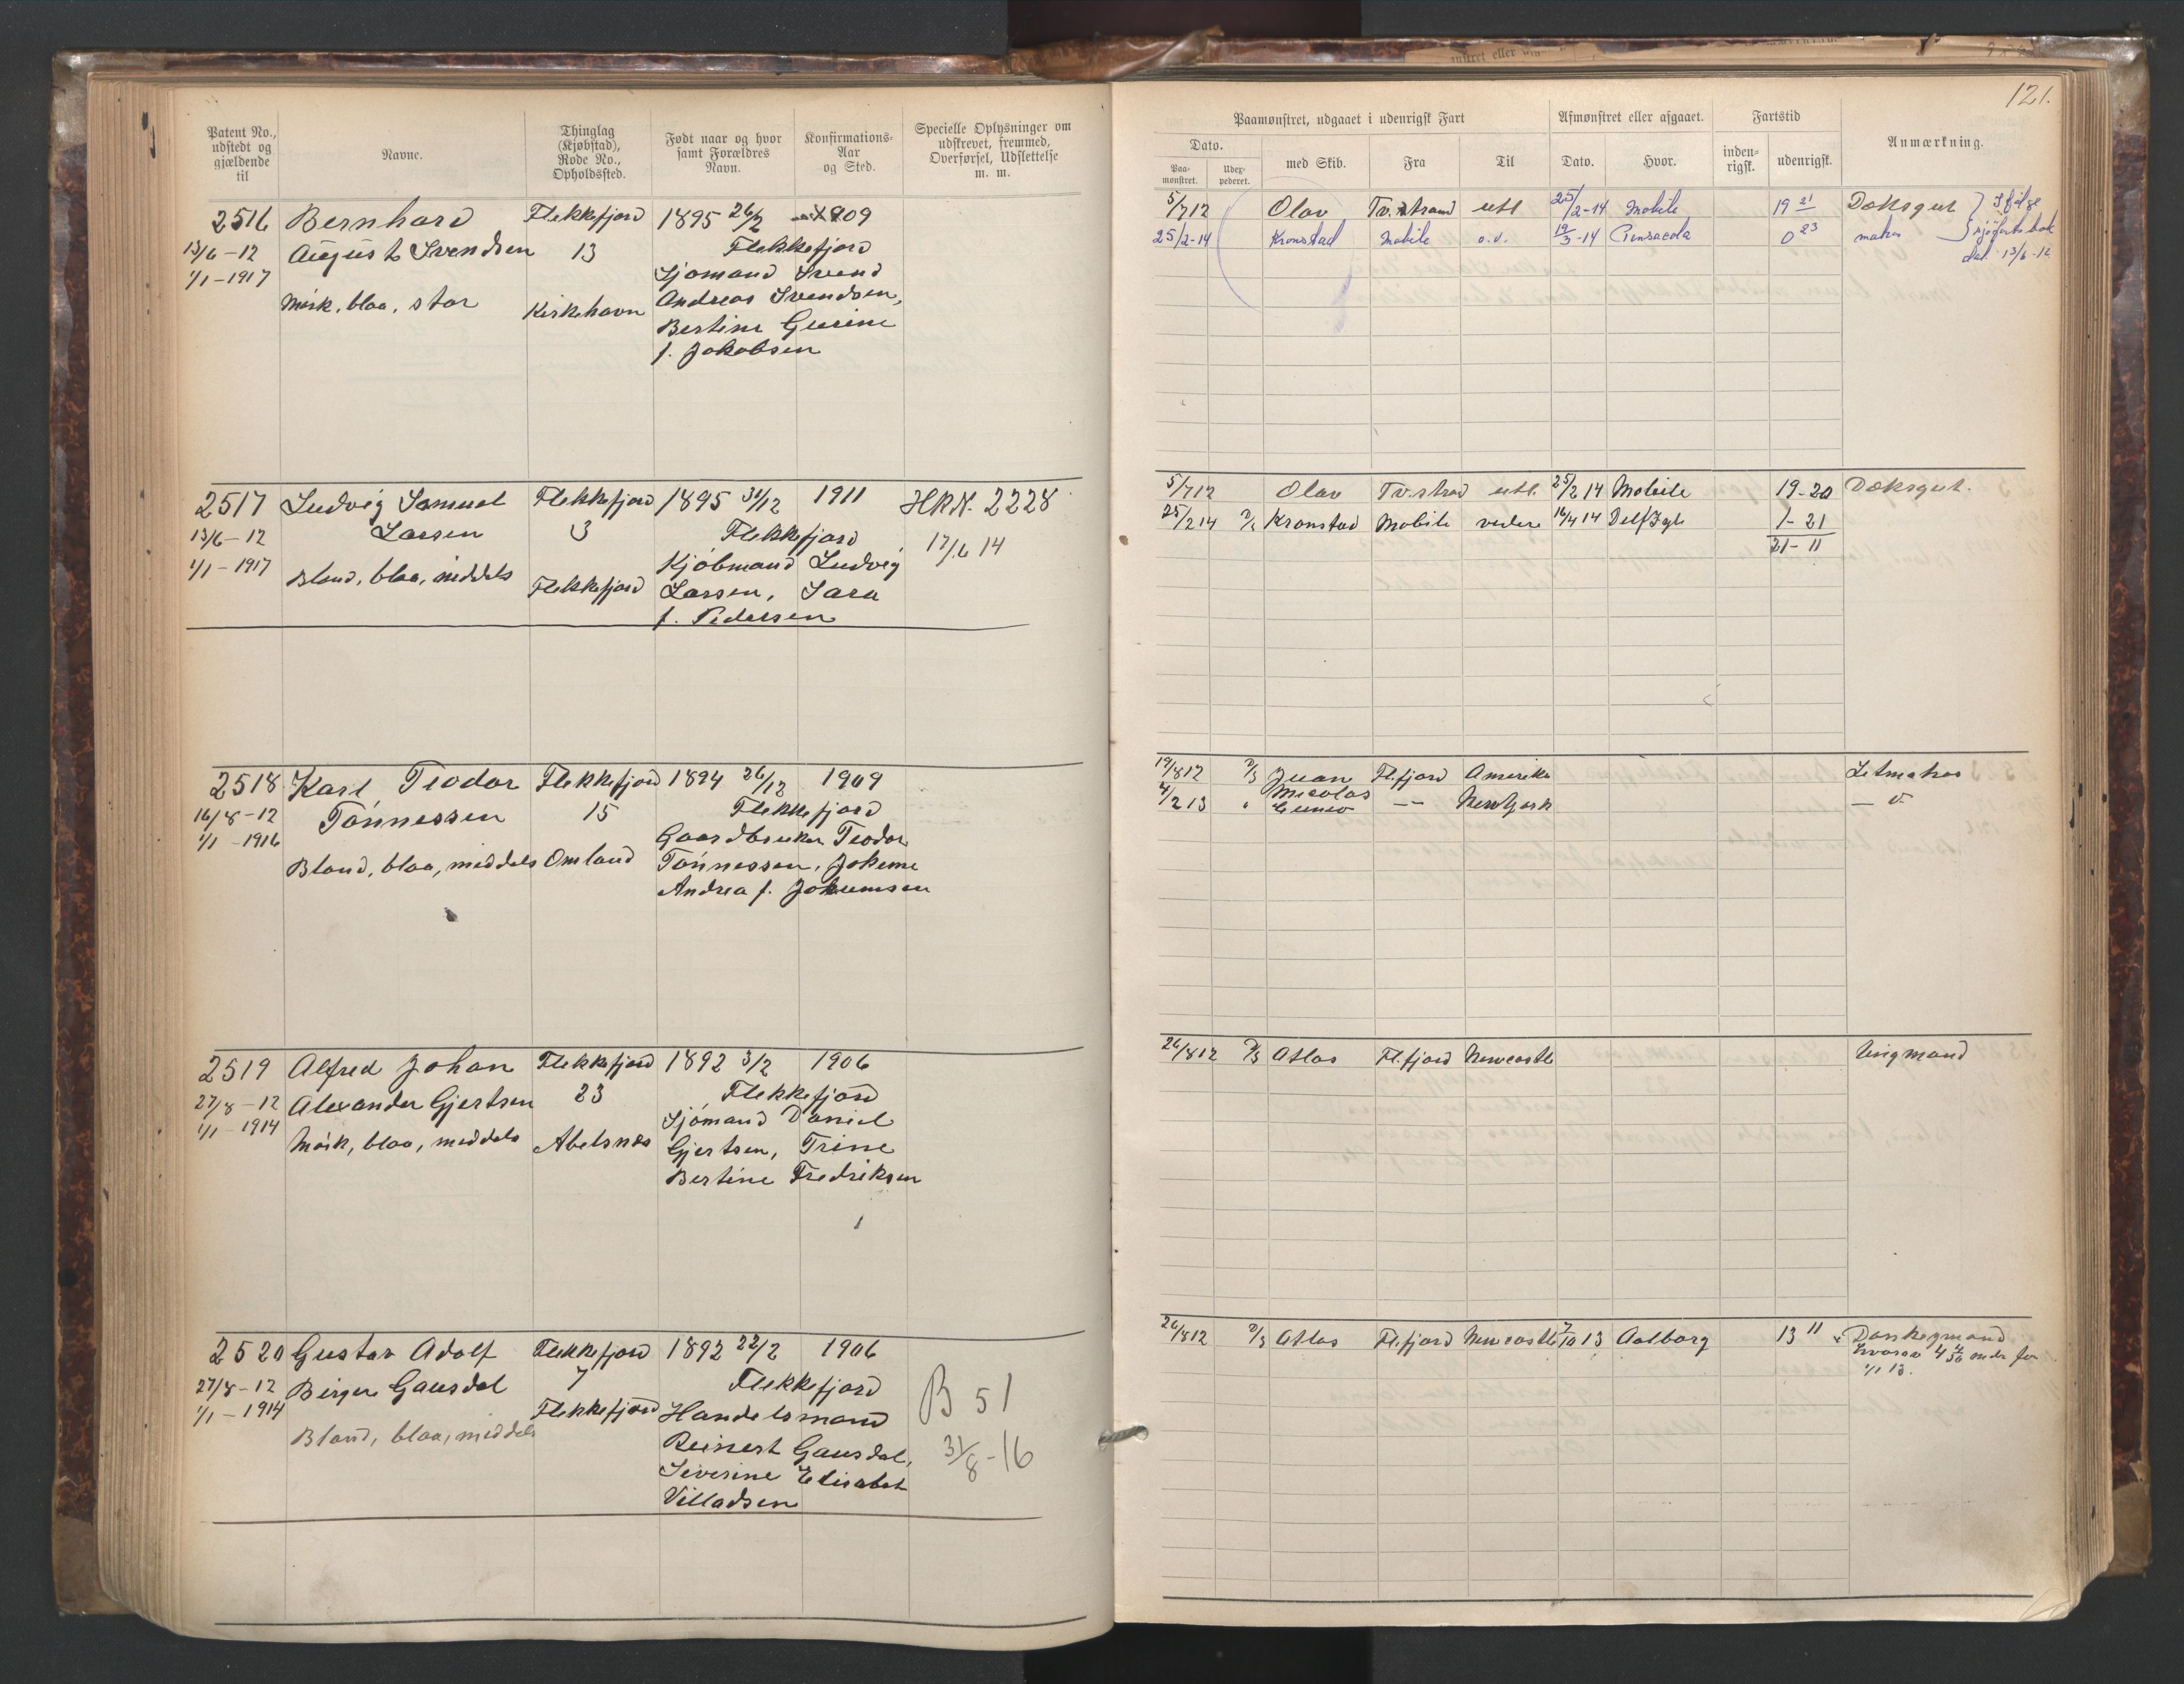 121.
Patent No., udstedt og gjældende til
Navne.
Thinglag (Kjøbstad), Rode No., Opholdssted.
Født naar og hvor samt Forældres Navn.
Konfirmations-Aar og Sted.
Specielle Oplysninger om udskrevet, fremmed, Overførsel, Udslettelse m. m.
Paamønstret, udgaaet i udenrigsk Fart
Afmønstret eller afgaaet.
Fartstid
Anmærkning.
Dato.
Paa-mønstret.
Udex-pederet.
med Skib.
Fra
Til
Dato.
Hvor.
inden-rigsk.
udenrigsk.
2516 Bernhard Flekkefjord 1895 26/2 1909
13/6-12 August Svendsen 13 Flekkefjord
1/1-1917 Sjømand Svend
Mørk, blaa, stor Kirkehavn Andreas Svendsen,
Bertine Gurine
f. Jakobsen
5/7 12 Olav Tv.strand utl 25/2-14 Mobile 19 21 Dæksgut } Ifølge
25/2-14 Kronstad Mobile o.v. 19/3-14 Pensacola 0 23 matros } sjøfartsbok
dat. 13/6-12
2517 Ludvig Samuel Flekkefjord 1895 31/12 1911 HRN. 2228
13/6-12 Larsen 3 Flekkefjord 17/6 14
1/1-1917 Kjøbmand Ludvig
Blond, blaa, middels Flekkefjord Larsen, Sara
f. Pedersen
5/7 12 Olav Tv.strand utl. 25/2 14 Mobile 19-20 Dæksgut.
25/2 14 Kronstad Mobile videre 16/4 14 Delfzyl 1-21
21-11
2518 Karl Teodor Flekkefjord 1894 26/12 1909
16/8-12 Tønnessen 15 Flekkefjord
1/1-1916 Gaardbruker Teodor
Blond, blaa, middels Omland Tønnessen, Jokeme
Andrea f. Jokumsen
19/8 12 D/S Juan Fl.fjord Amerika Letmatros
4/2 13 " Nicolas Cuneo -"- New York - " -
2519 Alfred Johan Flekkefjord 1892 3/2 1906
27/8-12 Alexander Gjertsen 23 Flekkefjord
1/1-1914 Sjømand Daniel
Mørk, blaa, middels Abelsnæs Gjertsen, Trine
Bertine Fredriksen
26/8 12 D/S Atlas Fl.fjord Newcastle Ungmand
2520 Gustav Adolf Flekkefjord 1892 22/2 1906
27/8-12 Birger Gausdal 7 Flekkefjord B 51
1/1-1914 Flekkefjord Handelsmand
Blond, blaa, middels Reinert Gausdal, 31/8-16
Severine Elisabet
Villadsen
26/8 12 D/S Atlas Fl.fjord Newcastle 7/10 13 Aalborg 13 11 Donkeymand
hvorav 4 mdr før
1/1 13.